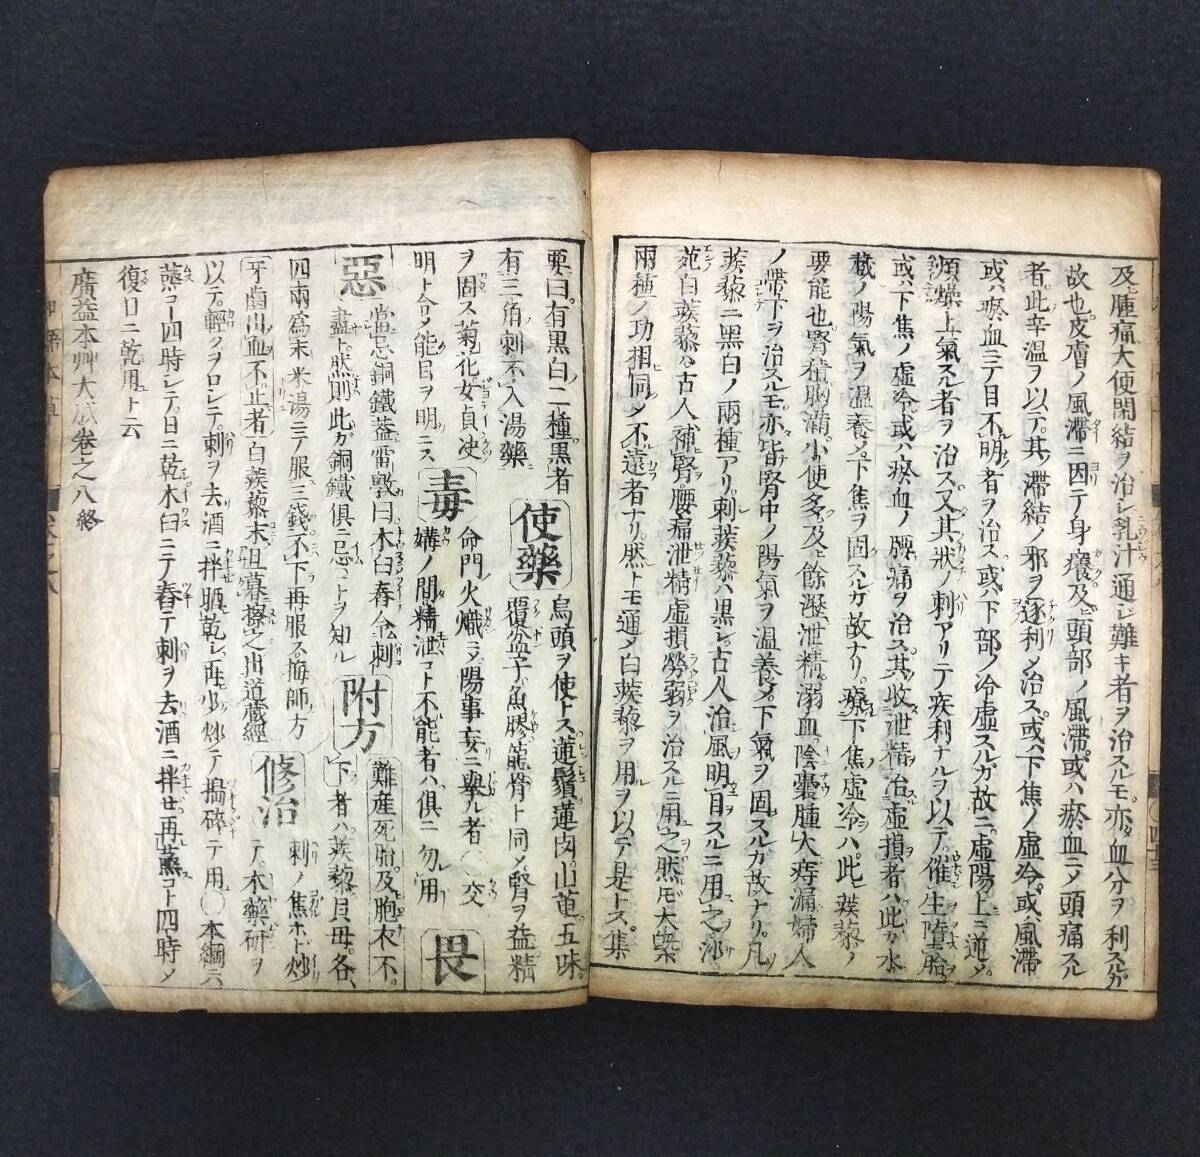 及ヒ腫痛大便閉結ヲ治シ乳汁通シ難キ者ヲ治スルモ亦血分ヲ利スルガ
故也皮膚ノ風滞ニ因テ身癢及ヒ頭部ノ風滞或ハ瘀血ニノ頭痛スル
者此辛温ヲ以テ其滞結ノ邪ヲ逐利メ治ス或ハ下焦ノ虚冷或ハ風滞
或ハ瘀血ニテ目不明者ヲ治ス或ハ下部ノ冷虚スルガ故ニ虚陽上ニ逆メ
煩燥上氣スル者ヲ治ス又其状ノ刺アリテ疾利ナルヲ以テ催生堕胎
或ハ下焦ノ虚冷或ハ瘀血ノ腰痛ヲ治ス其收泄精治虚損者ハ此カ水
蔵ノ陽氣ヲ温養メ下焦ヲ固スルカ故ナリ療下焦虚冷ハ此蒺藜ノ
要能也腎積胸満小便多及ヒ餘瀝泄精溺血陰嚢腫大痔漏婦人
ノ帯下ヲ治スルモ亦皆腎中ノ陽氣ヲ温養メ下氣ヲ固スルガ故ナリ凡
蒺藜ニ黒白ノ兩種アリ刺蒺藜ハ黒シ古人治風明目スルニ用之沙
苑白蒺藜ハ古人補腎腰痛泄精虚損勞弱ヲ治スルニ用之然𪜈大槩
兩種ノ功相同メ不遠者ナリ然トモ運メ白蒺藜ヲ用ヲ以テ是トス集
要曰有黒白二種黒者
有三角刺不入湯藥
使藥
烏頭ヲ使トス蓮鬚蓮肉山茰五味
覆盆子魚膠龍骨ト同メ腎ヲ益精
ヲ固ス菊花女貞决
明ト合メ能目ヲ明ニス
毒
命門火熾ニメ陽事妄ニ擧ル者交
媾ノ間精泄コト不能者ハ俱ニ勿用
畏
惡
當忌銅鐵蓋雷斅曰木臼舂令刺
盡ト然則此カ銅鐵俱ニ忌コトヲ知ル
附方
難産死胎及胞衣不
下者ハ蒺藜貝母各
四兩為末米湯ニテ服三錢不下再服ス梅師方
牙齒出血不止者白蒺藜末旦暮擦之出道蔵經
修治
刺ノ焦ホド炒
テ木藥研ヲ
以テ輕クヲロシテ刺ヲ去酒ニ拌晒乾シ再少炒テ搗碎テ用〇本綱ニ云
蒸コト四時シテ日ニ乾木臼ニテ舂テ刺ヲ去酒ニ拌セ再蒸コト四時メ
復日ニ乾用ト云
廣益本艸大成卷之八終